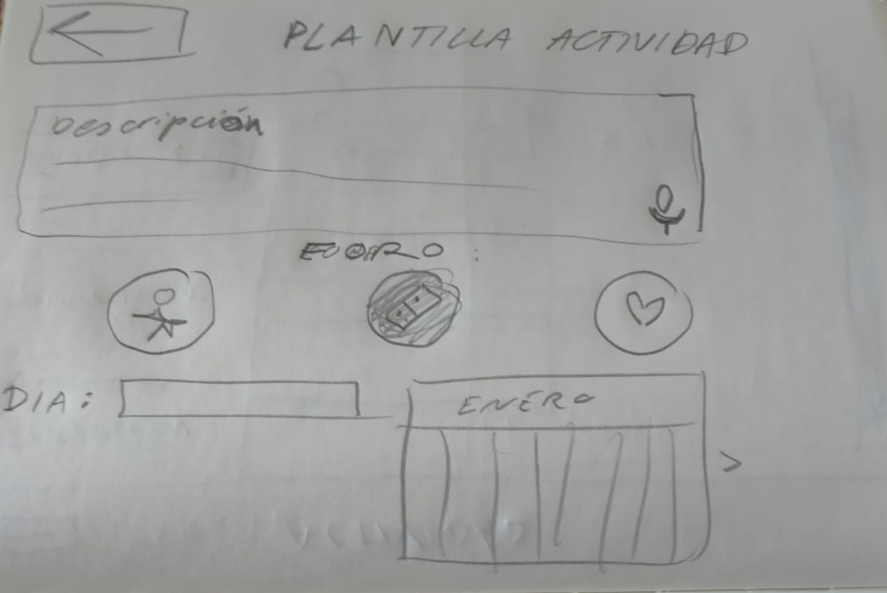 PLANTILLA ACTIVIDAD
Descripción
DIA:
ENERO